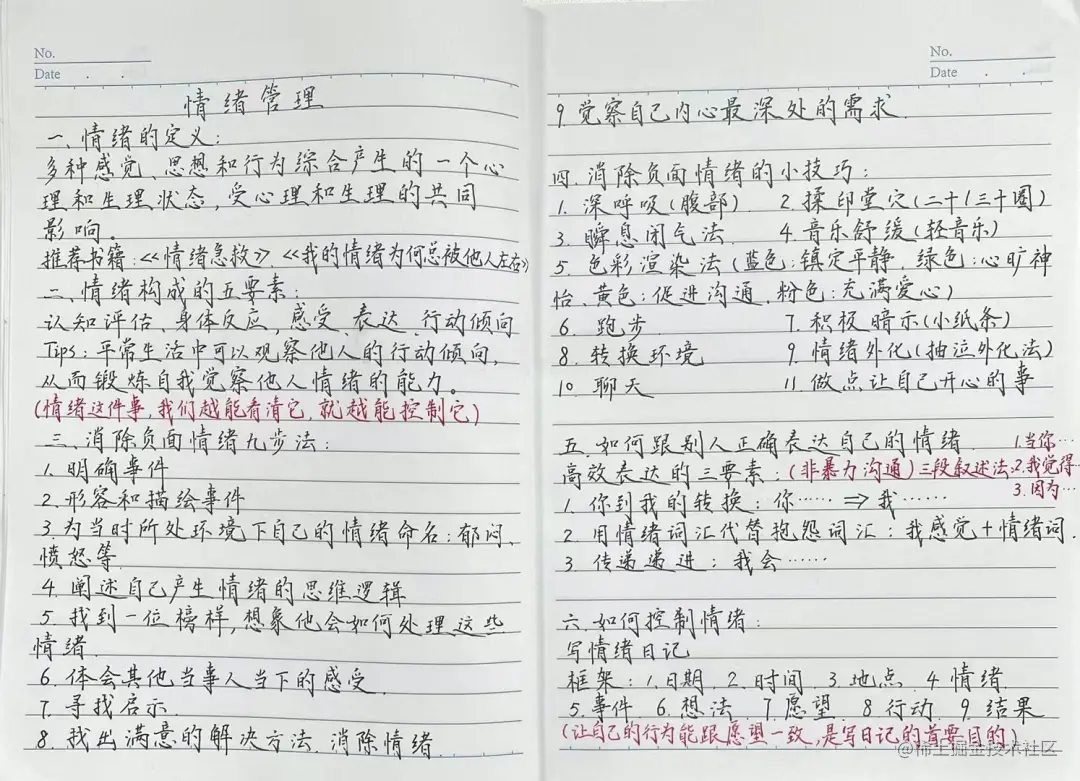 No.
Date . .
情绪管理
一、情绪的定义:
多种感觉、思想和行为综合产生的一个心
理和生理状态,受心理和生理的共同
影响。
推荐书籍:《情绪急救》、《我的情绪为何总被他人左右》
二、情绪构成的五要素:
认知评估、身体反应,感受、表达、行动倾向
Tips:平常生活中可以观察他人的行动倾向,
从而锻炼自我觉察他人情绪的能力。
(情绪这件事,我们越能看清它,就越能控制它)
三、消除负面情绪九步法:
1. 明确事件
2. 形容和描绘事件
3. 为当时所处环境下自己的情绪命名:郁闷、
愤怒等.
4. 阐述自己产生情绪的思维逻辑
5. 找到一位榜样,想象他会如何处理这些
情绪.
6. 体会其他当事人当下的感受.
7. 寻找启示.
8. 找出满意的解决方法.消除情绪.
No.
Date . .
9. 觉察自己内心最深处的需求.
四.消除负面情绪的小技巧:
1. 深呼吸(腹部). 2. 揉印堂穴(二十/三十圈)
3. 瞬息闭气法. 4. 音乐舒缓(轻音乐)
5. 色彩渲染法(蓝色:镇定平静.绿色:心旷神
怡、黄色:促进沟通.粉色:充满爱心)
6. 跑步. 7. 积极暗示(小纸条)
8. 转换环境 9. 情绪外化(抽泣外化法)
10. 聊天 11. 做点让自己开心的事
五.如何跟别人正确表达自己的情绪 1.当你…
高效表达的三要素:(非暴力沟通)三段叙述法: 2.我觉得…
3.因为…
1. 你到我的转换:你…… ⇒ 我……
2. 用情绪词汇代替抱怨词汇:我感觉+情绪词.
3. 传递递进:我会……
六.如何控制情绪:
写情绪日记
框架:1.日期. 2. 时间. 3. 地点. 4. 情绪.
5. 事件 6. 想法. 7. 愿望. 8. 行动 9. 结果
(让自己的行为能跟愿望一致,是写日记的首要目的)
@稀土掘金技术社区